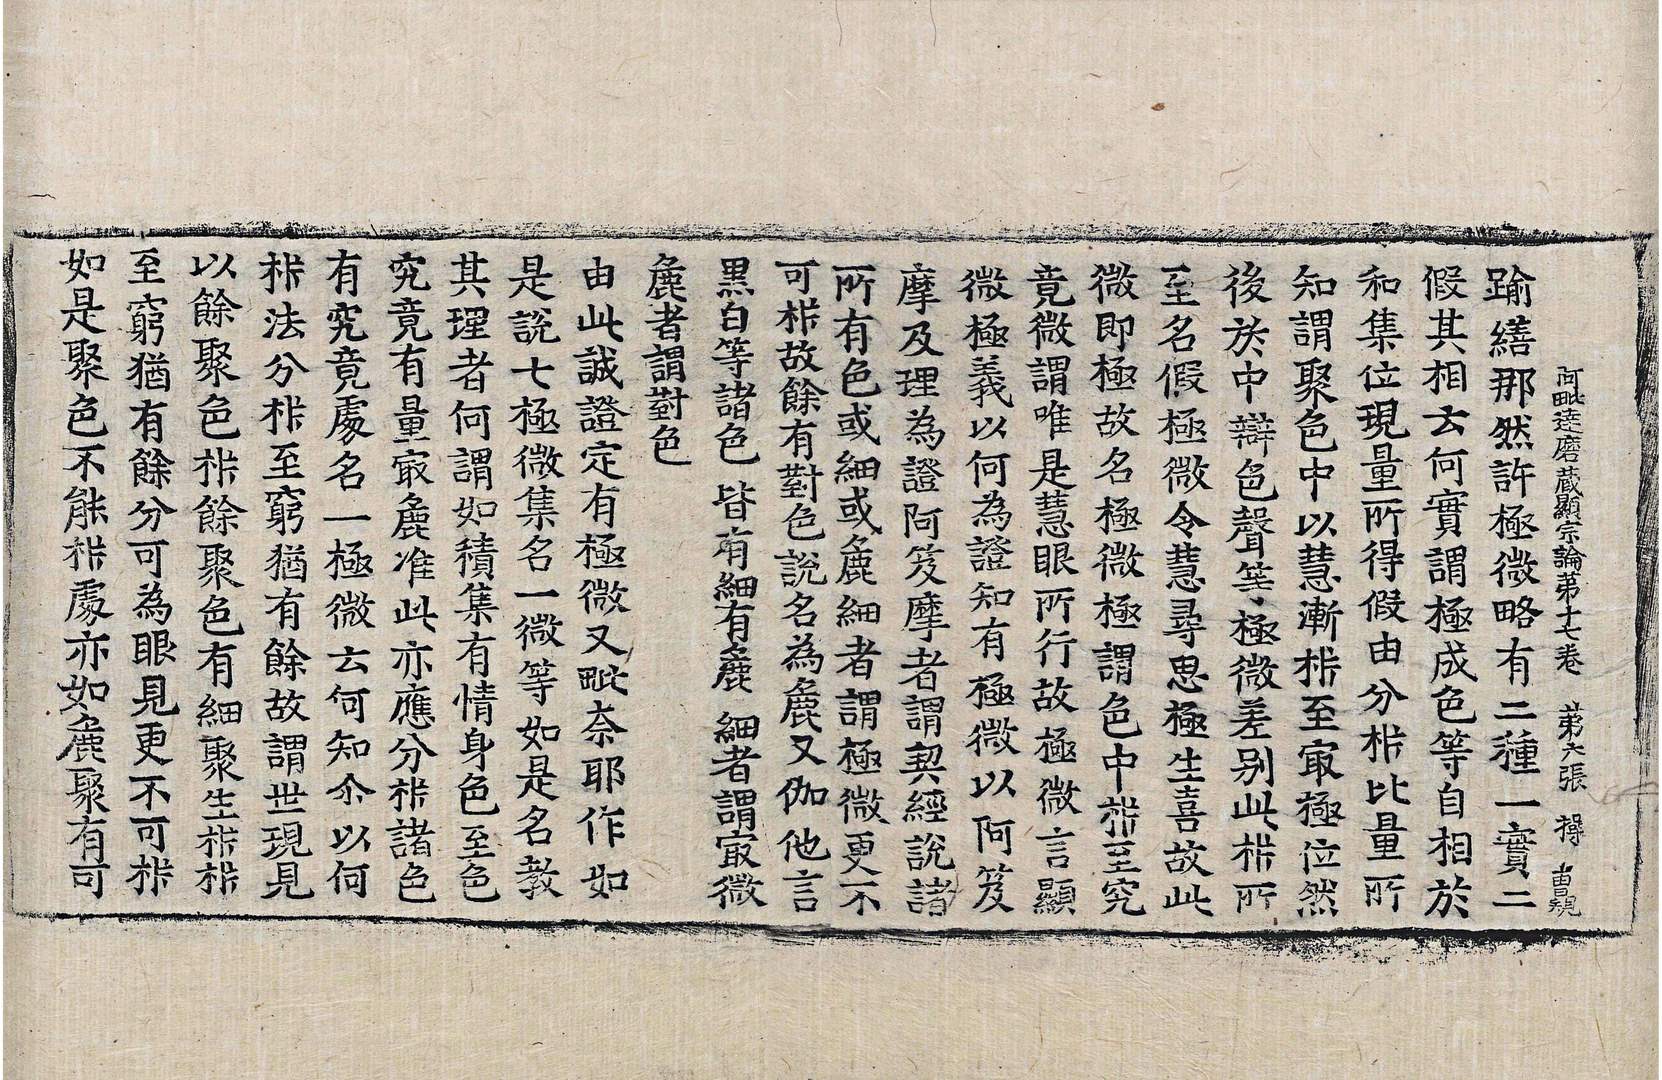 阿毗達磨藏顯宗論第十七卷 第六張 得 曺覌
踰繕那然許極微略有二種一實二
假其相云何實謂極成色等自相於
和集位現量所得假由分析比量所
知謂聚色中以慧漸析至㝡極位然
後於中辯色聲等極微差别此析所
至名假極微令慧尋思極生喜故此
微即極故名極微極謂色中析至究
竟微謂唯是慧眼所行故極微言顯
微極義以何為證知有極微以阿笈
摩及理為證阿笈摩者謂契經說諸
所有色或細或麁細者謂極微更不
可析故餘有對色說名為麁又伽他言
黒白等諸色 皆有細有麁 細者謂㝡微
麁者謂對色
由此誠證定有極微又毗奈耶作如
是說七極微集名一微等如是名教
其理者何謂如積集有情身色至色
究竟有量㝡麁准此亦應分析諸色
有究竟處名一極微云何知尒以何
析法分析至窮猶有餘故謂世現見
以餘聚色析餘聚色有細聚生析析
至窮猶有餘分可為眼見更不可析
如是聚色不能析處亦如麁聚有可